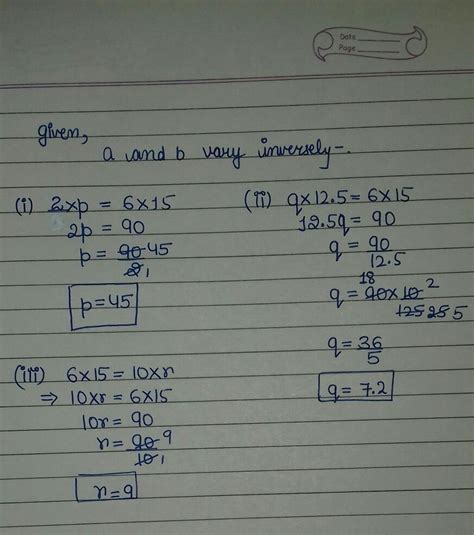 Date
Page
given,
a and b vary inversely-.
(i) 2×p = 6×15
2p = 90
p = 90 45
2 1
p=45
(ii) q×12.5 = 6×15
12.5q = 90
q = 90
12.5
18
q = 90×10 2
125 25 5
q = 36
5
q = 7.2
(iii) 6×15 = 10×r
⇒ 10×r = 6×15
10r = 90
r = 90 9
10 1
r=9